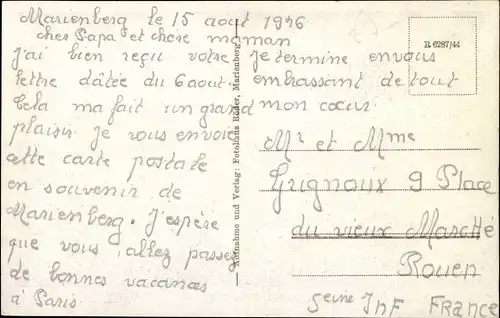 Marienberg le 15 aout 1946
cher Papa et chere maman
J'ai bien reçu votre
lettre dâtée du 6 aout.
Cela ma fait un grand
plaisir je vous envoie
cette carte postale
en souvenir de
Marienberg. J'espère
que vous allez passez
de bonnes vacances
à Paris
Je termine en vous
embrassant de tout
mon cœur
Aufnahme und Verlag: Fotohaus Rader, Marienberg
R 6287/44
Mr et Mme
Grignoux 9 Place
du vieux Marche
Rouen
Seine Inf France